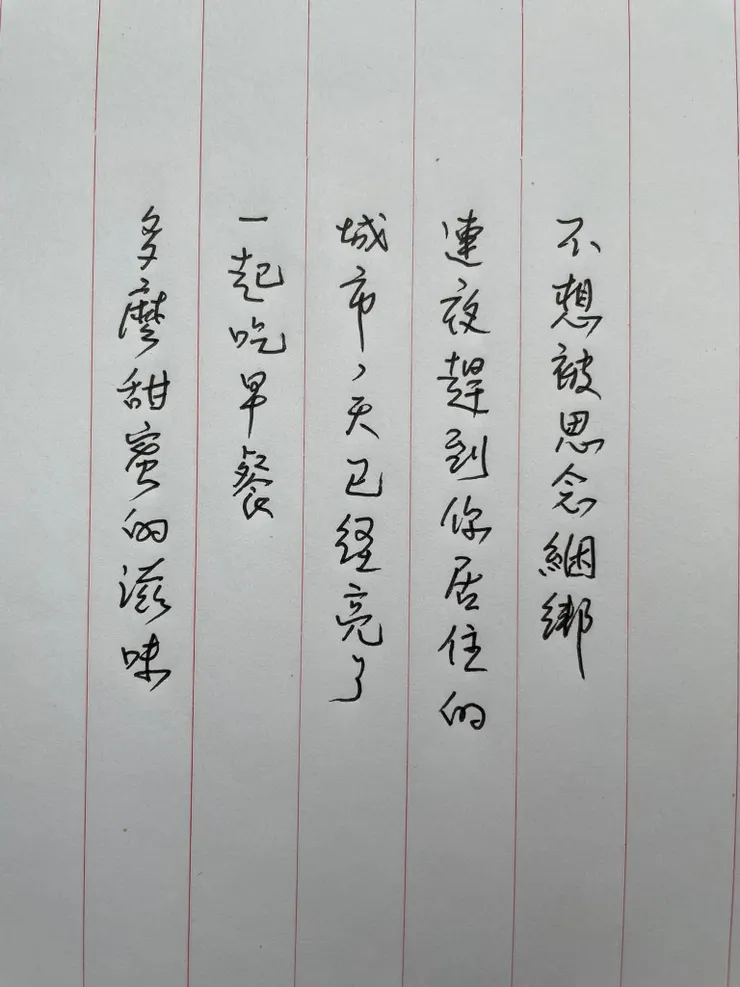 不想被思念綑綁
連夜趕到你居住的
城市，天已經亮了
一起吃早餐
多麼甜蜜的滋味